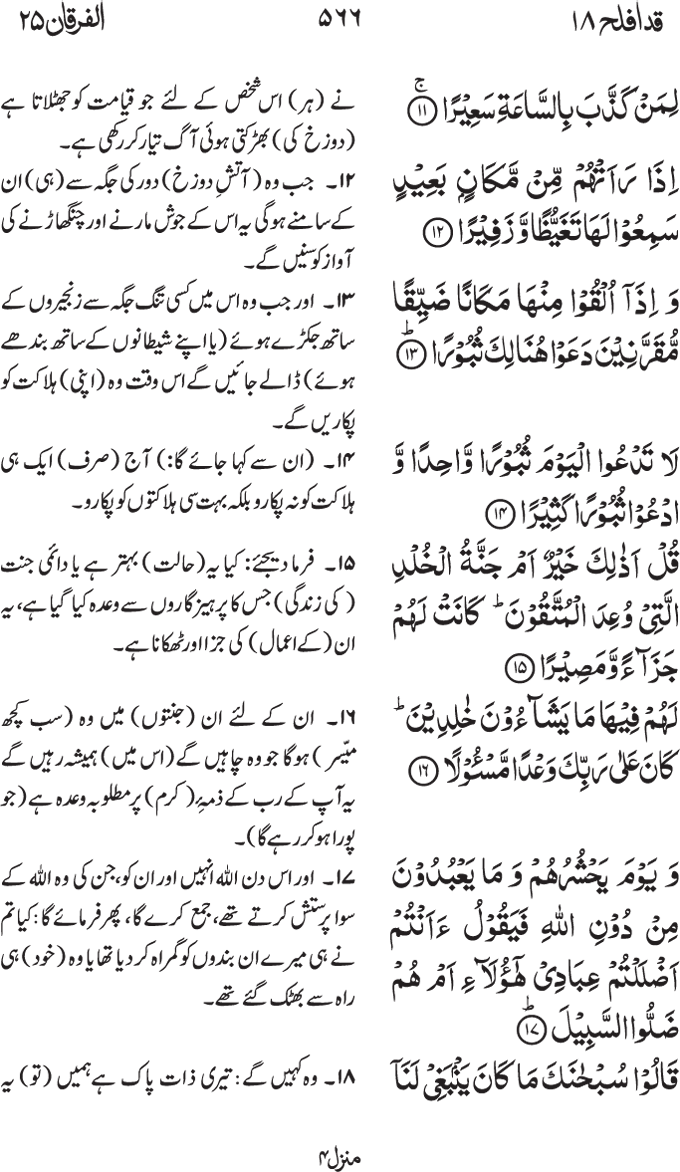 قد افلح ۱۸
۵۶۶
الفرقان ۲۵
لِمَنۡ كَذَّبَ بِالسَّاعَةِ سَعِيۡرًا ۚ‏ ﴿۱۱﴾
اِذَا رَاَتۡهُمۡ مِّنۡ مَّكَانٍۢ بَعِيۡدٍ
سَمِعُوۡا لَهَا تَغَيُّظًا وَّ زَفِيۡرًا ﴿۱۲﴾
وَ اِذَاۤ اُلۡقُوۡا مِنۡهَا مَكَانًا ضَيِّقًا
مُّقَرَّنِيۡنَ دَعَوۡا هُنَالِكَ ثُبُوۡرًا ؕ ﴿۱۳﴾
لَا تَدۡعُوا الۡيَوۡمَ ثُبُوۡرًا وَّاحِدًا وَّ
ادۡعُوۡا ثُبُوۡرًا كَثِيۡرًا ﴿۱۴﴾
قُلۡ اَذٰلِكَ خَيۡرٌ اَمۡ جَنَّةُ الۡخُلۡدِ
الَّتِىۡ وُعِدَ الۡمُتَّقُوۡنَ ؕ كَانَتۡ لَهُمۡ
جَزَآءً وَّ مَصِيۡرًا ﴿۱۵﴾
لَهُمۡ فِيۡهَا مَا يَشَآءُوۡنَ خٰلِدِيۡنَ ؕ
كَانَ عَلٰى رَبِّكَ وَعۡدًا مَّسۡـُٔوۡلًا ﴿۱۶﴾
وَ يَوۡمَ يَحۡشُرُهُمۡ وَ مَا يَعۡبُدُوۡنَ
مِنۡ دُوۡنِ اللّٰهِ فَيَقُوۡلُ ءَاَنۡتُمۡ
اَضۡلَلۡتُمۡ عِبَادِىۡ هٰٓؤُلَآءِ اَمۡ هُمۡ
ضَلُّوا السَّبِيۡلَ ؕ ﴿۱۷﴾
قَالُوۡا سُبۡحٰنَكَ مَا كَانَ يَنۡۢبَغِىۡ لَنَاۤ
نے (ہر) اس شخص کے لئے جو قیامت کو جھٹلاتا ہے
(دوزخ کی) بھڑکتی ہوئی آگ تیار کر رکھی ہے۔
۱۲۔ جب وہ (آتشِ دوزخ) دور کی جگہ سے (ہی) ان
کے سامنے ہوگی یہ اس کے جوش مارنے اور چنگھاڑنے کی
آواز کو سنیں گے۔
۱۳۔ اور جب وہ اس میں کسی تنگ جگہ سے زنجیروں کے
ساتھ جکڑے ہوئے (یا اپنے شیطانوں کے ساتھ بندھے
ہوئے) ڈالے جائیں گے اس وقت وہ (اپنی) ہلاکت کو
پکاریں گے۔
۱۴۔ (ان سے کہا جائے گا:) آج (صرف) ایک ہی
ہلاکت کو نہ پکارو بلکہ بہت سی ہلاکتوں کو پکارو۔
۱۵۔ فرما دیجئے: کیا یہ (حالت) بہتر ہے یا دائمی جنت
(کی زندگی) جس کا پرہیزگاروں سے وعدہ کیا گیا ہے، یہ
ان (کے اعمال) کی جزا اور ٹھکانا ہے۔
۱۶۔ ان کے لئے ان (جنتوں) میں وہ (سب کچھ
میّسر) ہوگا جو وہ چاہیں گے (اس میں) ہمیشہ رہیں گے
یہ آپ کے رب کے ذمۂِ (کرم) پر مطلوبہ وعدہ ہے (جو
پورا ہو کر رہے گا)۔
۱۷۔ اور اس دن اللہ انہیں اور ان کو، جن کی وہ اللہ کے
سوا پرستش کرتے تھے، جمع کرے گا، پھر فرمائے گا: کیا تم
نے ہی میرے ان بندوں کو گمراہ کر دیا تھا یا وہ (خود) ہی
راہ سے بھٹک گئے تھے۔
۱۸۔ وہ کہیں گے: تیری ذات پاک ہے ہمیں (تو) یہ
منزل ۴